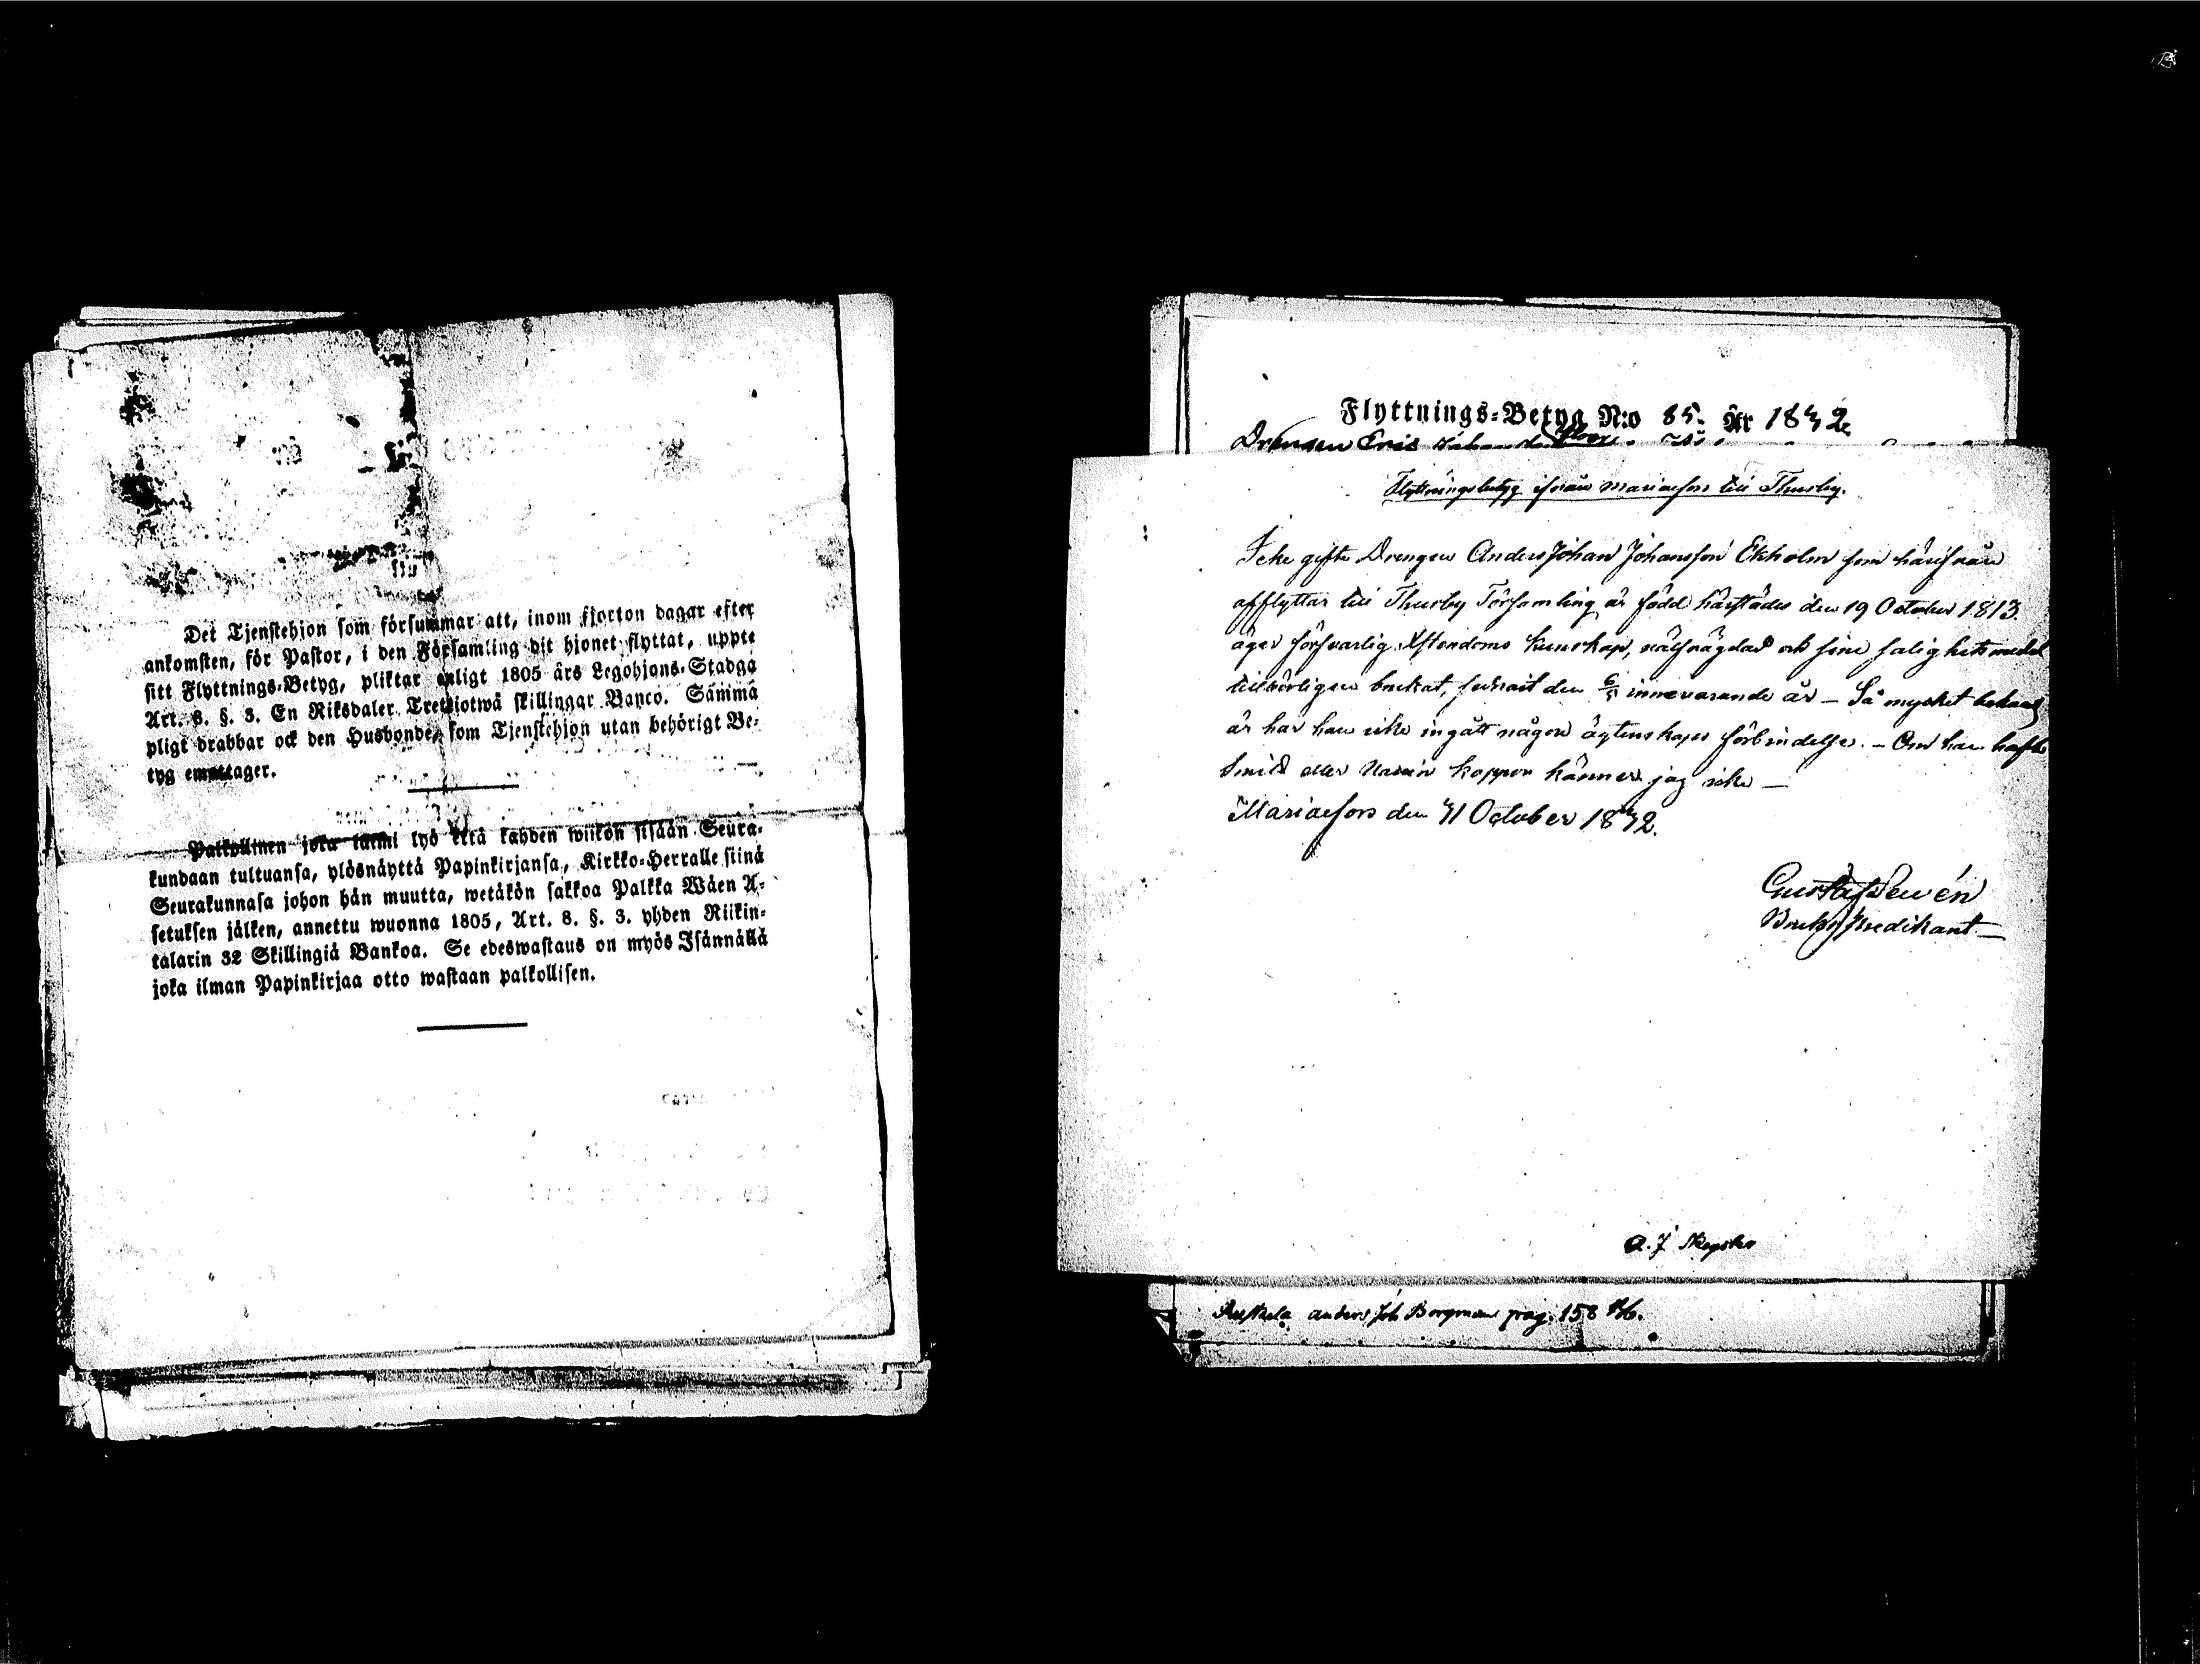 Det Tjenstehjon som försummar att, inom fjorton dagar efter
ankomsten, för Pastor, i den Församling dit hjonet flyttat, uppte
sitt Flyttnings-Betyg, pliktar enligt 1805 års Legohjons-Stadga
Art. 8. §. 3. En Riksdaler Trettiotwå skillingar Banco. Samma
pligt drabbar ock den Husbonde, som Tjenstehjon utan behörigt Be-
tyg emottager.
Palkollinen joka laimi lyö että kahden wiikon sisään Seura-
kundaan tultuansa, ylösnäyttä Papinkirjansa, Kirkko-Herralle siinä
Seurakunnasa johon hän muutta, wetäkön sakkoa Palkka Wäen A-
setuksen jälken, annettu wuonna 1805, Art. 8. §. 3. yhden Riikin-
talarin 32 Skillingiä Bankoa. Se edeswastaus on myös Isännällä
joka ilman Papinkirjaa otto wastaan palkollisen.
Flyttnings-Betyg N:o 85. År 1842
Drengen Eric
Flyttningsbetyg ifrån Mariaefors till Thusby.
Icke gifte Drengen Anders Johan Johansson Ekholm som härifrån
afflyttar till Thusby Församling är född härstädes den 19 October 1813.
äger försvarlig Xstendoms kunskap, och sine salighetsmedel
tillbörligen brukat, sednast den innevarande år — Så mycket bekant
är har han icke ingått någon ägtenskaps förbindelse. — Om han haft
eller koppor känner jag icke —
Mariaefors den 31 October 1842.
Gustaf
Bruks Predikant —
A. J
anders Joh Bergman pag. 158